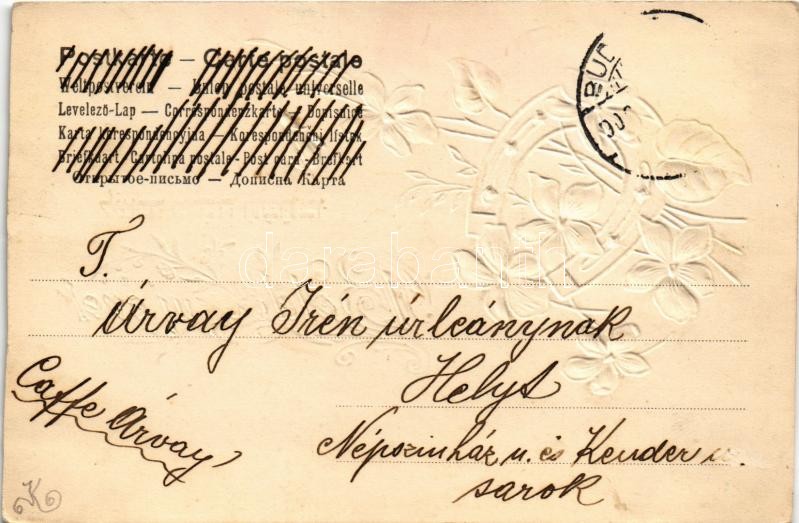 Postkarte — Carte postale
Weltpostverein — Union postale universelle
Levelező-Lap — Correspondenzkarte — Dopisnice
Karta korespondencyjna — Korespondenční lístek
Briefkaart Cartolina postale - Post card - Brefkort
Открытое-письмо — Дописна Карта
BUD
T.
Árvay Irén úrleánynak
Helyt
Caffe Árvay
Népszinház u. és Kender u.
sarok
darabanth
K
6 6